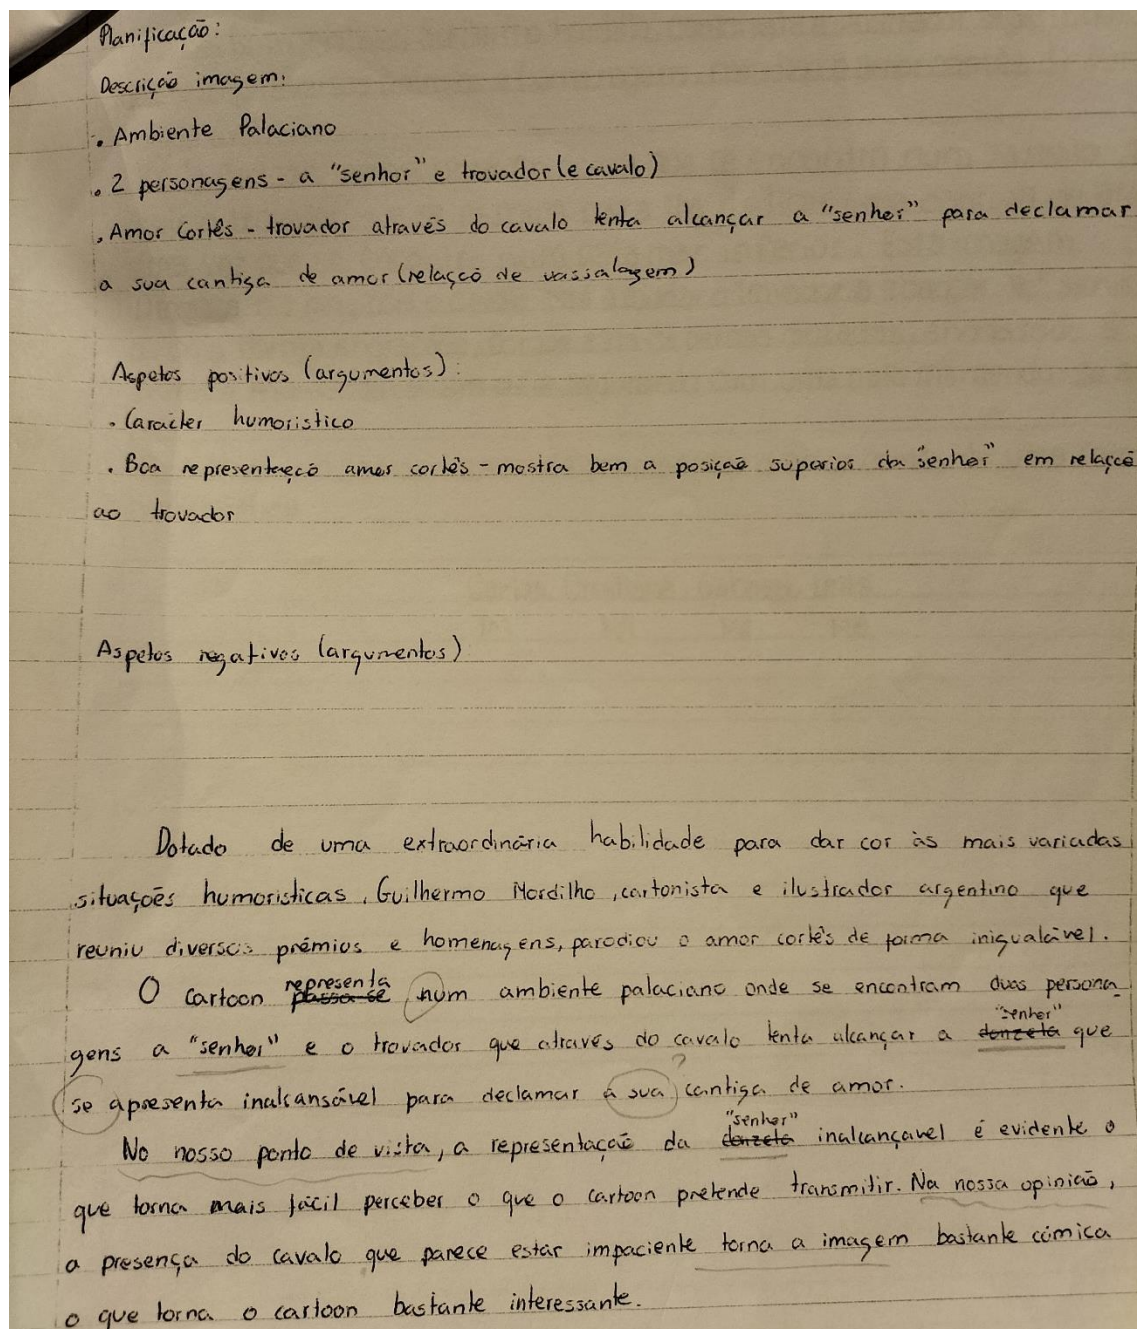 Planificação:
Descrição imagem:
. Ambiente Palaciano
. 2 personagens - a "senhor" e trovador (e cavalo)
. Amor Cortês - trovador através do cavalo tenta alcançar a "senhor" para declamar
a sua cantiga de amor (relaçcõ de vassalagem)
Aspetos positivos (argumentos):
. Carácter humoristico
. Boa representaeçõ amor cortês - mostra bem a posição superior da "senhor" em relaçcõ
ao trovador
Aspetos negativos (argumentos)
Dotado de uma extraordinária habilidade para dar cor às mais variadas
situações humoristicas, Guilhermo Mordilho, cartonista e ilustrador argentino que
reuniu diversos prémios e homenagens, parodiou o amor cortês de forma inigualável.
representa
O cartoon passa-se num ambiente palaciano onde se encontram duas persona_
"senhor"
gens a "senhor" e o trovador que através do cavalo tenta alcançar a donzela que
?
se apresenta inalcansável para declamar a sua cantiga de amor.
"senhor"
No nosso ponto de vista, a representação da donzela inalcançavel é evidente o
que torna mais fácil perceber o que o cartoon pretende transmitir. Na nossa opinião,
a presença do cavalo que parece estar impaciente torna a imagem bastante cómica
o que torna o cartoon bastante interessante.